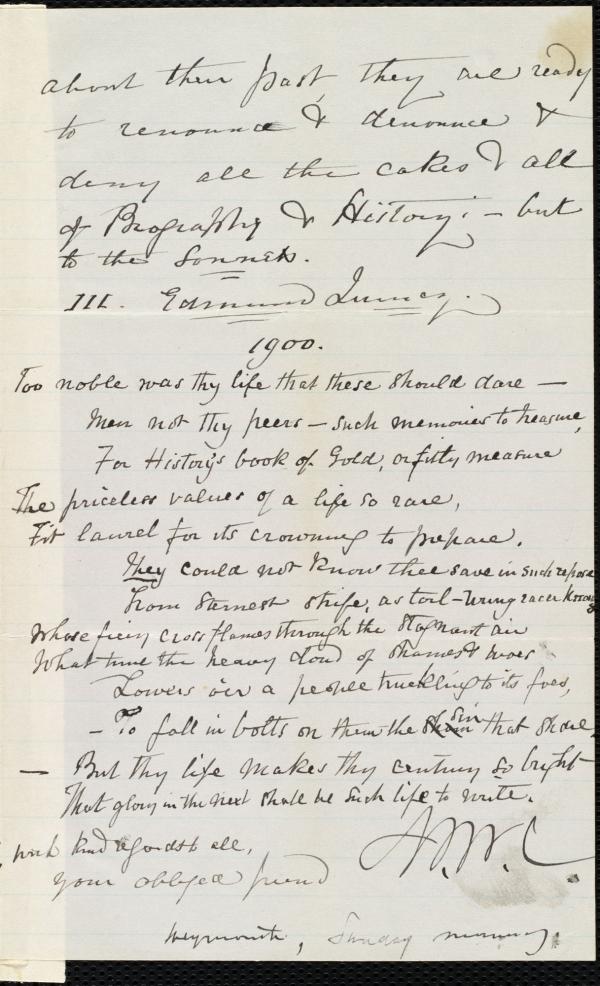 about their past, they are ready
to renounce & denounce &
deny all the cakes & all
of Biography & History; – but
to the Sonnets.
III. Edmund Quincy.
1900.
Too noble was thy life that these should dare —
Men not thy peers – such memories to treasure,
For History's book of Gold, or fitly measure
The priceless values of a life so rare,
Fit laurel for its crowning to prepare.
They could not know thee save in such repose
From sternest strife, as toil-wrung
Whose fiery cross flames through the stagnant air
What time the heavy cloud of shames & woes
Lowers o'er a people truckling to its foes,
– To fall in bolts on them the sin that share –
— But thy life makes thy century so bright
That glory in the next shall be such life to write.
with kind regards to all,
your obliged friend
Weymouth, Sunday morning.